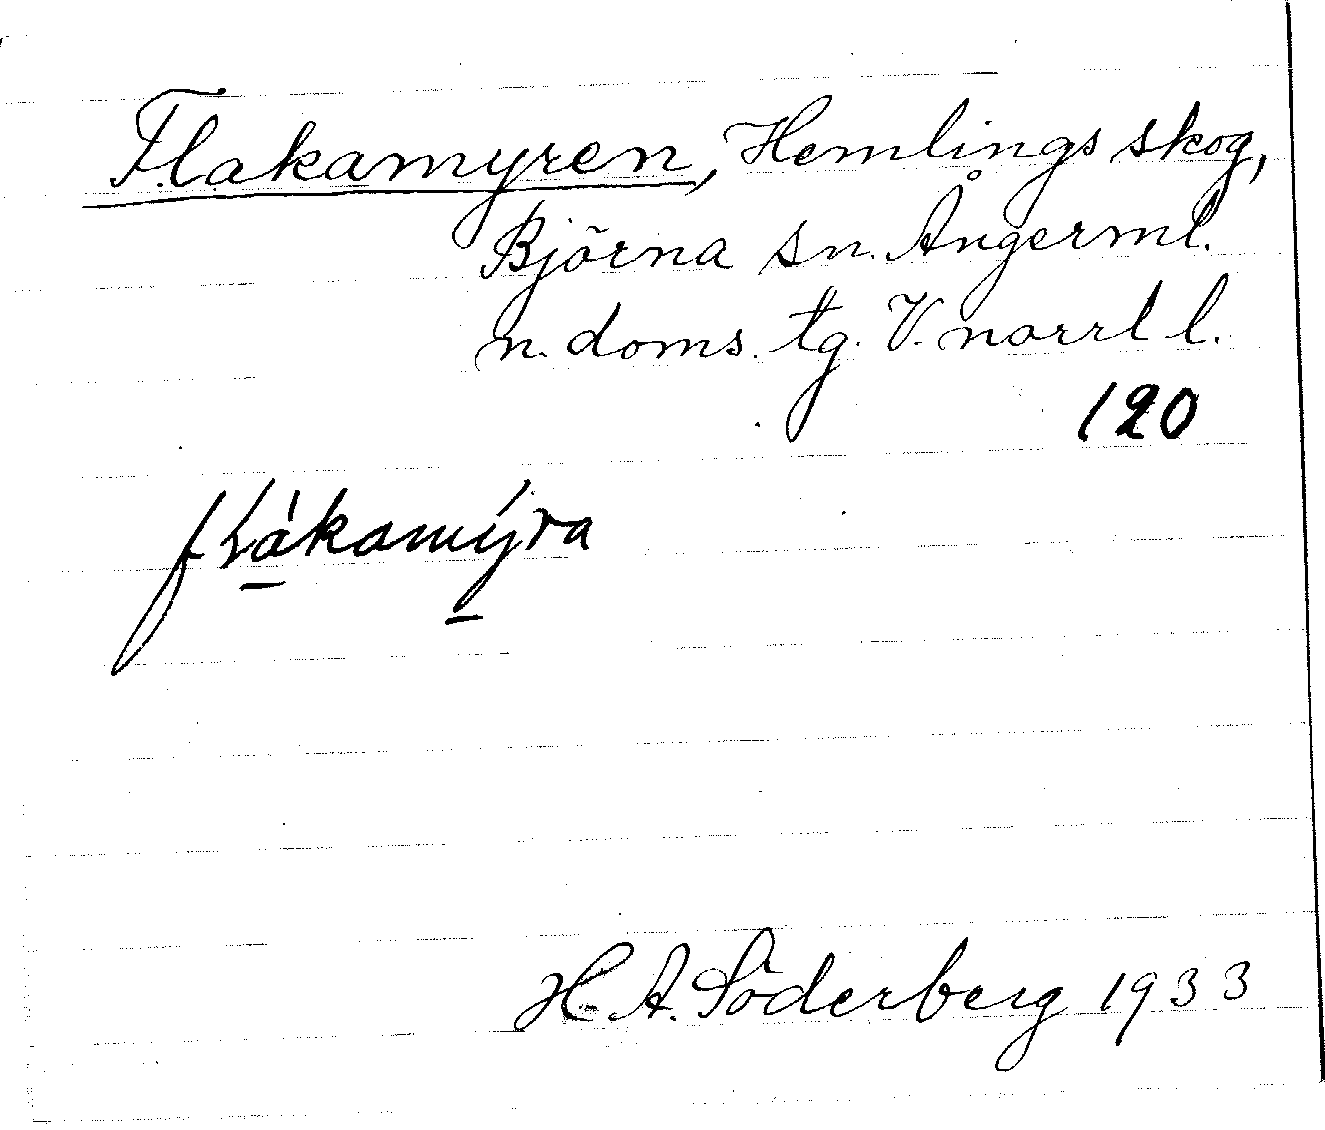 Flakamyren, Hemlings skog,
Björna sn. Ångerml.
n. doms. tg. V. norrl l.
120
flákamýra
H. A. Söderberg 1933